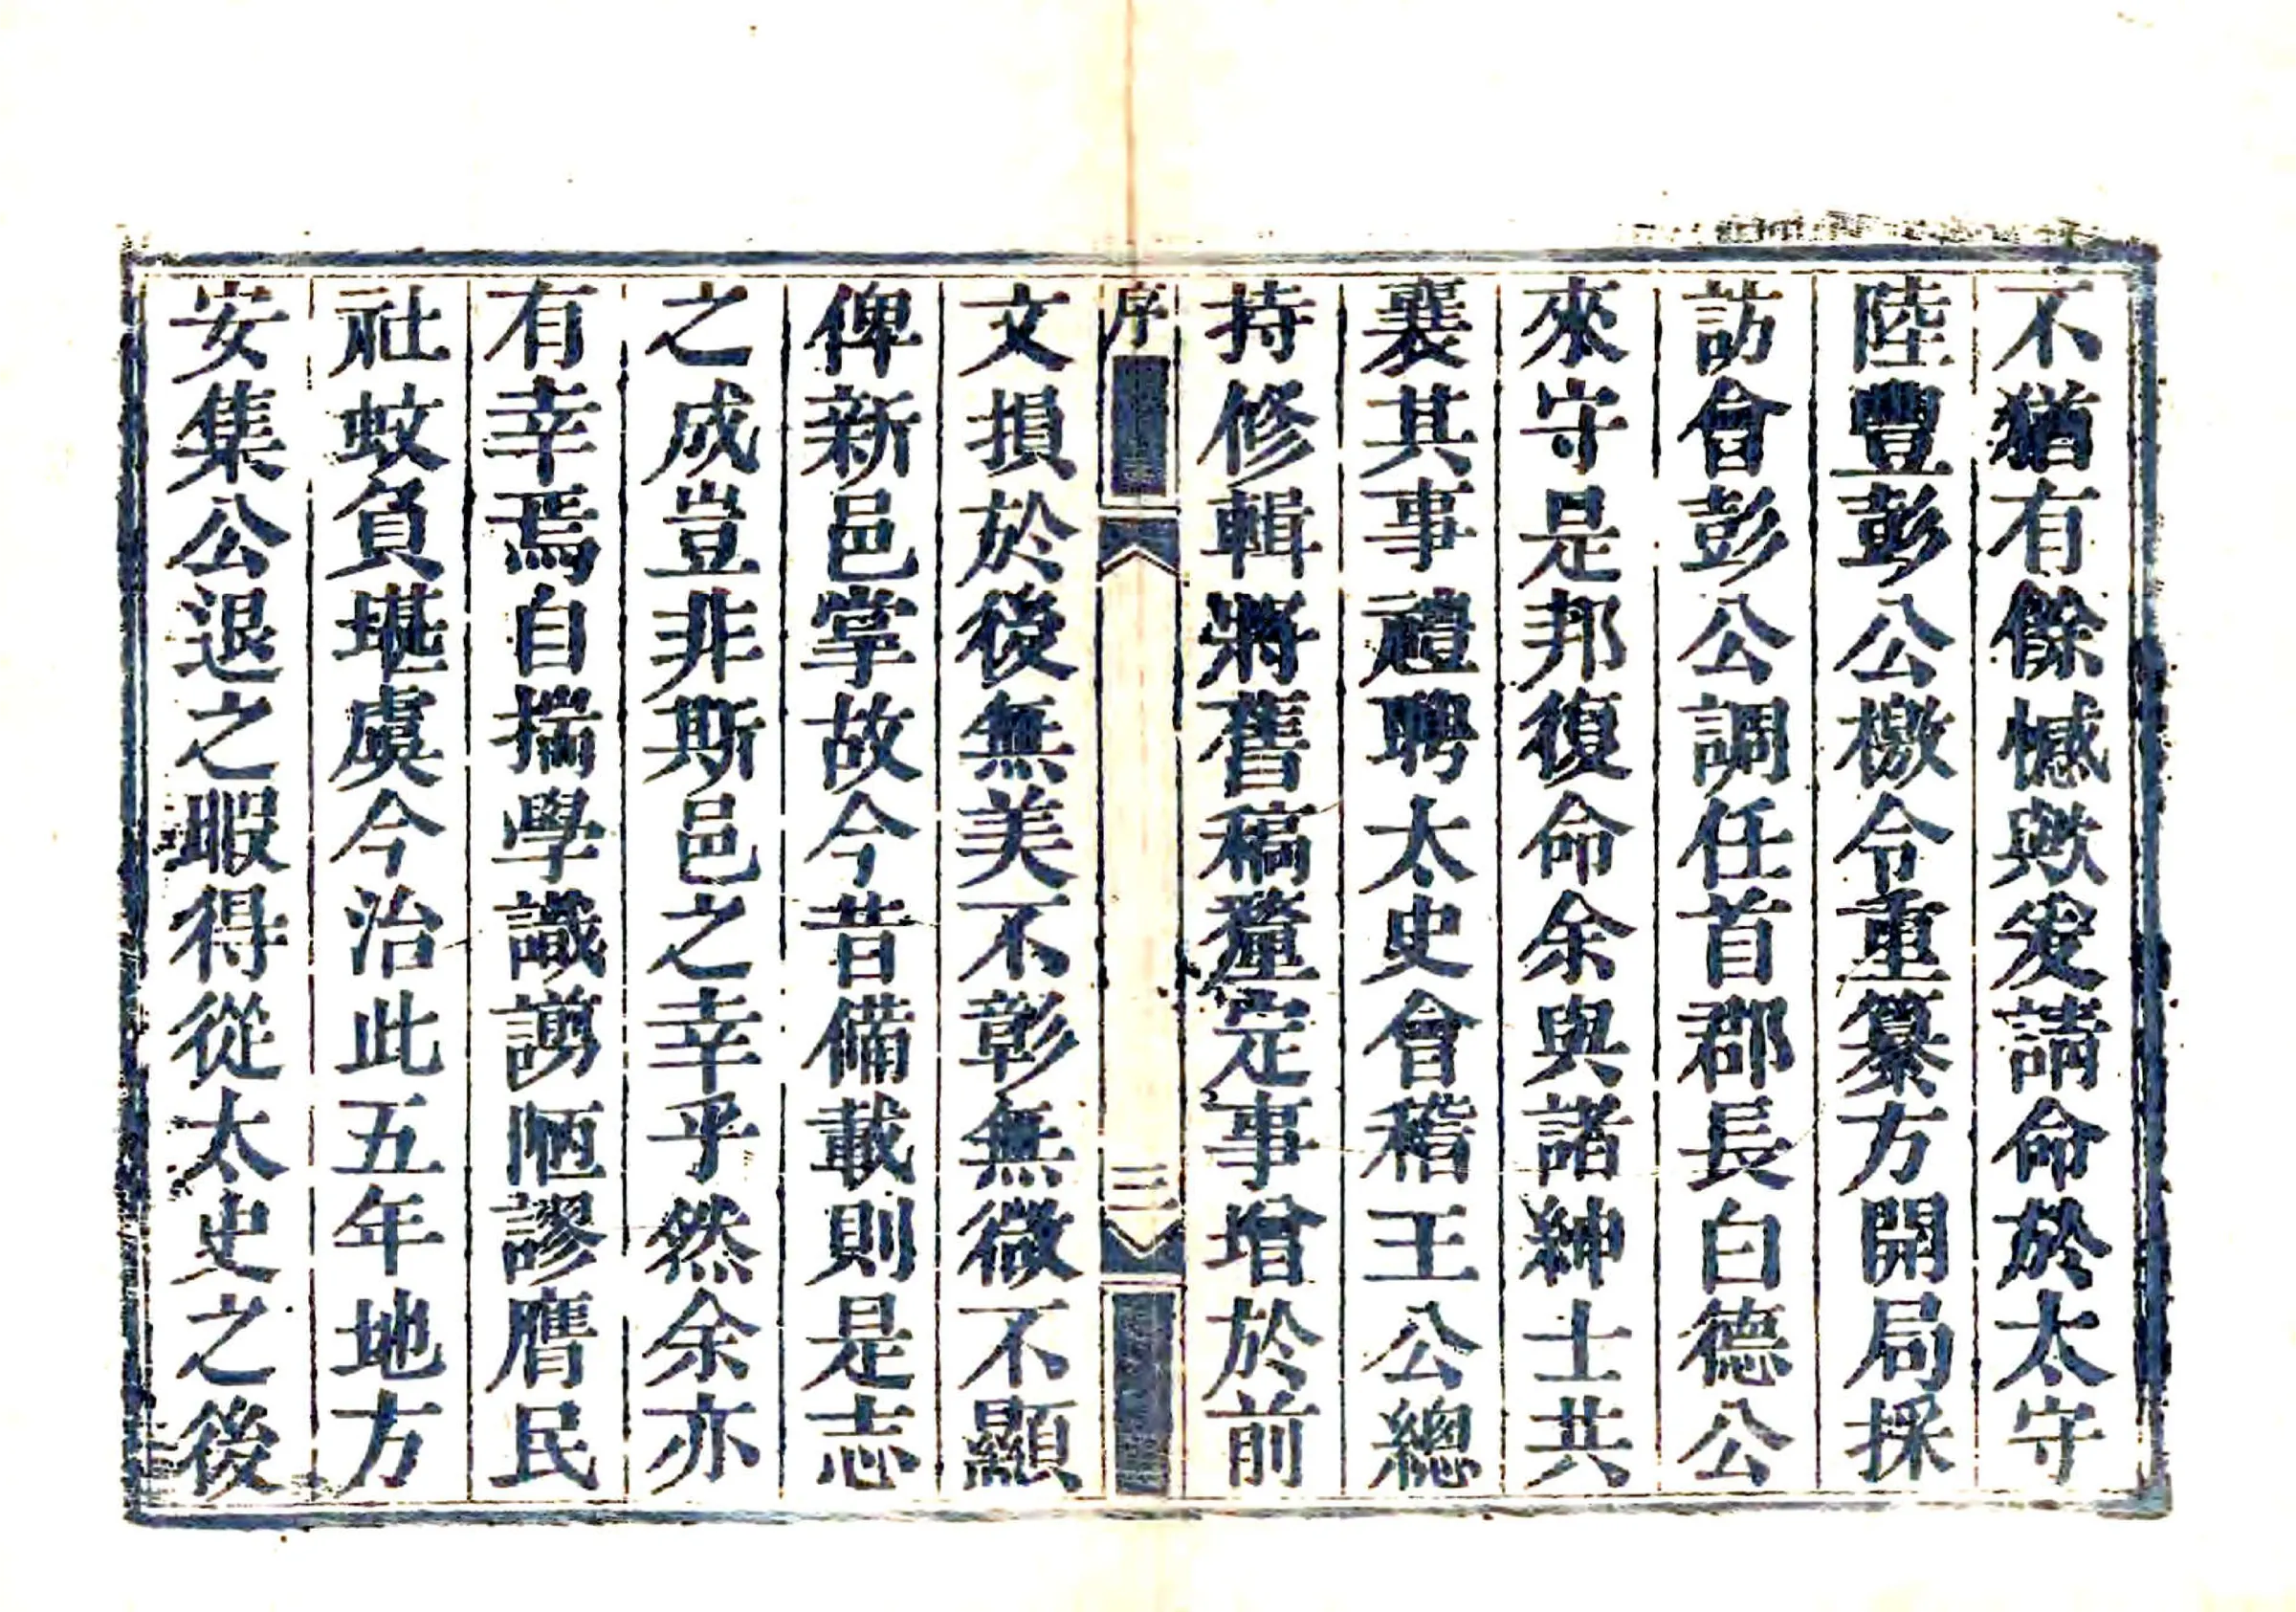 不猶有餘憾歟爰請命於太守
陸豐彭公檄令重纂方開局採
訪會彭公調任首郡長白德公
來守是邦復命余與諸紳士共
襄其事禮聘太史會稽王公總
持修輯將舊稿釐定事增於前
序
三
文損於後無美不彰無微不顯
俾新邑掌故今昔備載則是志
之成豈非斯邑之幸乎然余亦
有幸焉自揣學識謭陋謬膺民
社蚊負堪虞今治此五年地方
安集公退之暇得從太史之後